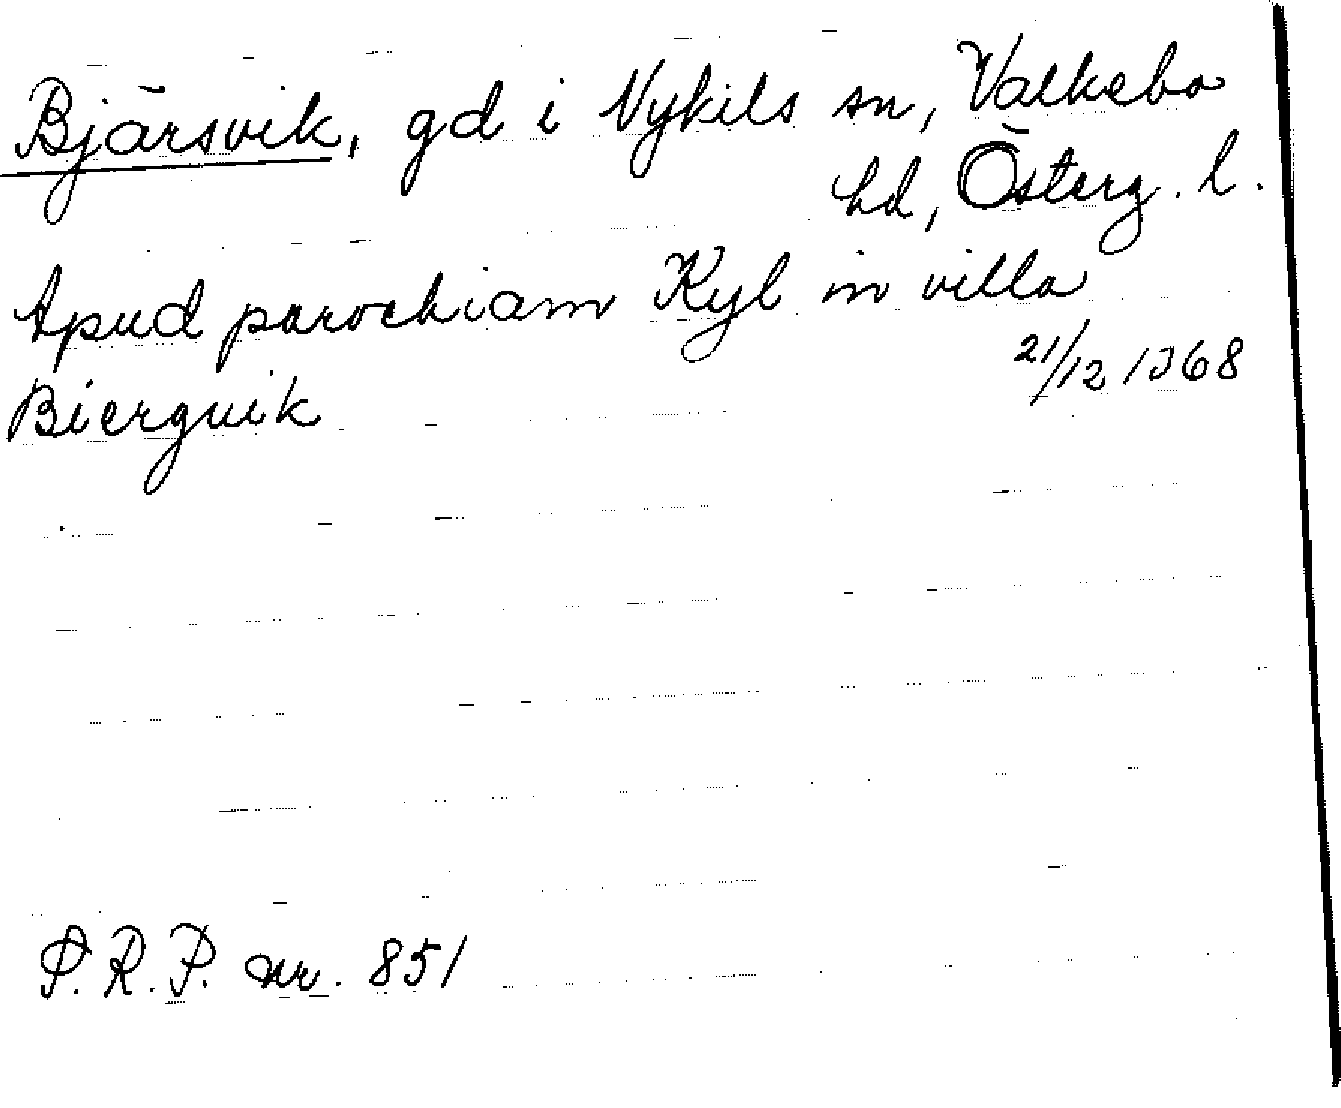 Bjärsvik, gd i Vykils sn, Valkebo
hd, Österg. l.
Apud parochiam Kyl in villa
Bierguik
21/12 1368
P.R.P. nr. 851